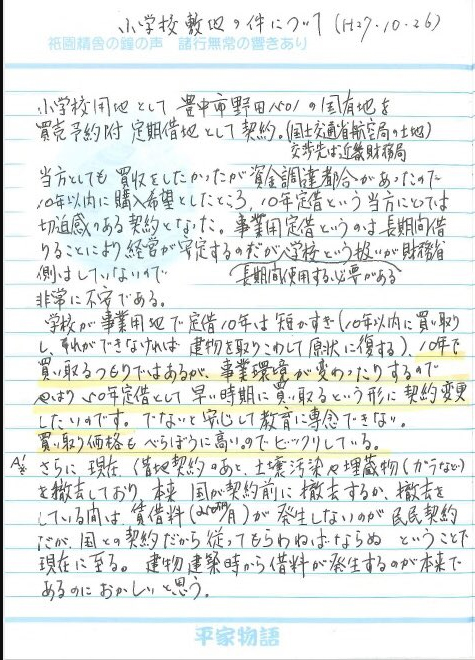 小学校敷地の件について(H27.10.26)
祇園精舎の鐘の声 諸行無常の響きあり
小学校用地として豊中市野田1501の国有地を
買売予約付定期借地として契約。(国土交通省航空局の土地)
交渉先は近畿財務局
当方としても買収をしたかったが資金調達都合があったので
10年以内に購入希望としたところ、10年定借という当方にとっては
切迫感のある契約となった。事業用定借というのは長期間借
りることにより経営が安定するのだが学校という扱いが財務省
側はしていないので
長期間使用する必要がある
非常に不安である。
学校が事業用地で定借10年は短かすぎ(10年以内に買い取り
し、それができなければ建物を取りこわして原状に復する)、10年で
買い取るつもりではあるが、事業環境が変わったりするので
やはり50年定借として早い時期に買い取るという形に契約変更
したいのです。でないと安心して教育に専念できない。
買い取り価格もべらぼうに高いのでビックリしている。
さらに現在、借地契約のあと、土壌汚染や埋蔵物(ガラなど)
を撤去しており、本来国が契約前に撤去するか、撤去を
している間は、賃借料(月)が発生しないのが民民契約
だが、国との契約だから従ってもらわねばならぬということで
現在に至る。建物建築時から借料が発生するのが本来で
あるのにおかしいと思う。
平家物語